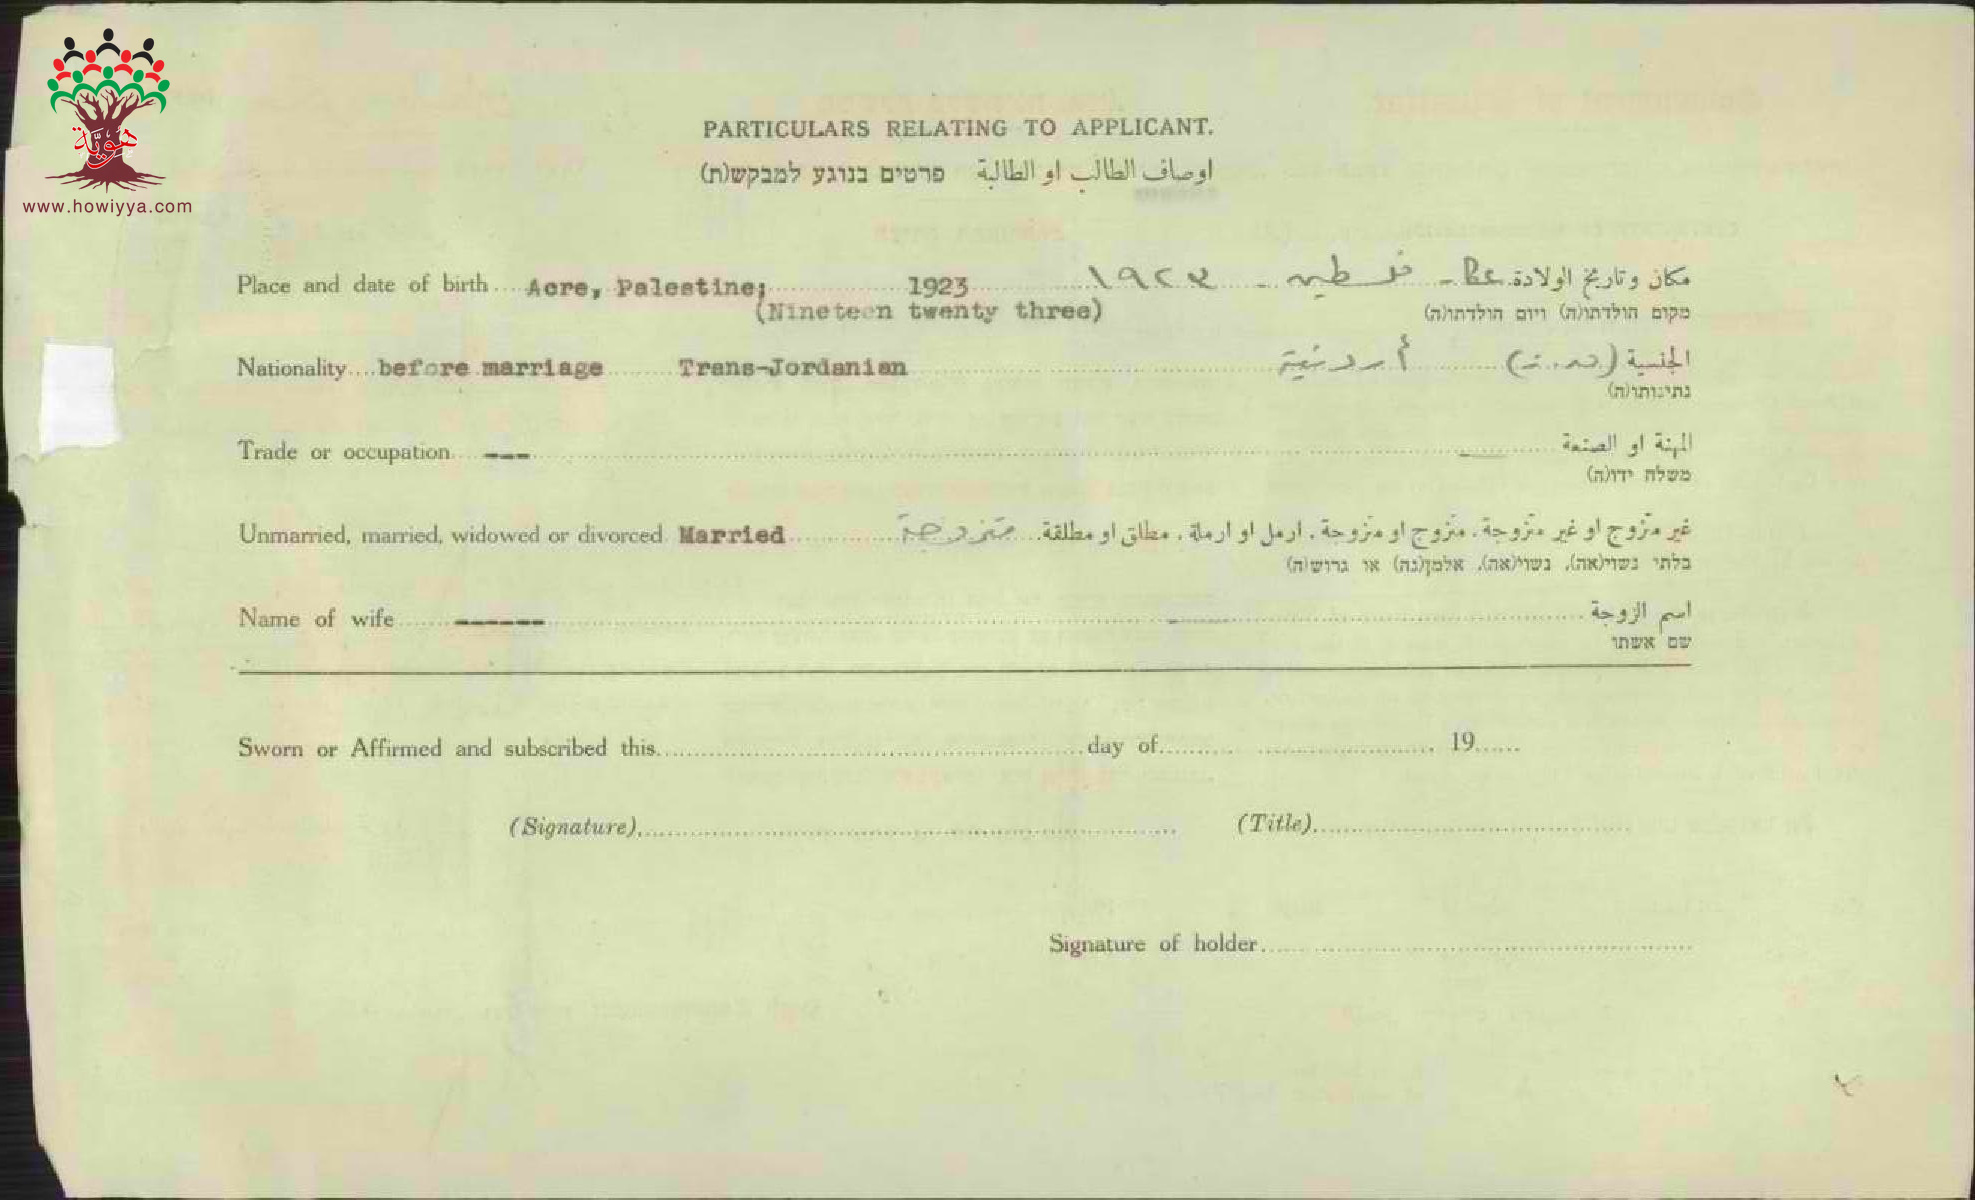 هوية
www.howiyya.com
PARTICULARS RELATING TO APPLICANT.
اوصاف الطالب او الطالبة פרטים בנוגע למבקש(ת)
Place and date of birth .... Acre, Palestine; 1923 ١٩٢٣ - فلسطين - عكا مكان وتاريخ الولادة
(Nineteen twenty three) מקום הולדתו(ה) ויום הולדתו(ה)
Nationality .... before marriage Trans-Jordanian أردنية الجنسية
נתינותו(ה)
Trade or occupation --- المهنة او الصنعة
משלח ידו(ה)
Unmarried, married, widowed or divorced Married متزوجة غير متزوج او غير متزوجة، متزوج او متزوجة، ارمل او ارملة، مطلق او مطلقة
בלתי נשוי(אה), נשוי(אה), אלמן(נה) או גרוש(ה)
Name of wife ------ اسم الزوجة
שם אשתו
Sworn or Affirmed and subscribed this day of 19
(Signature) (Title)
Signature of holder